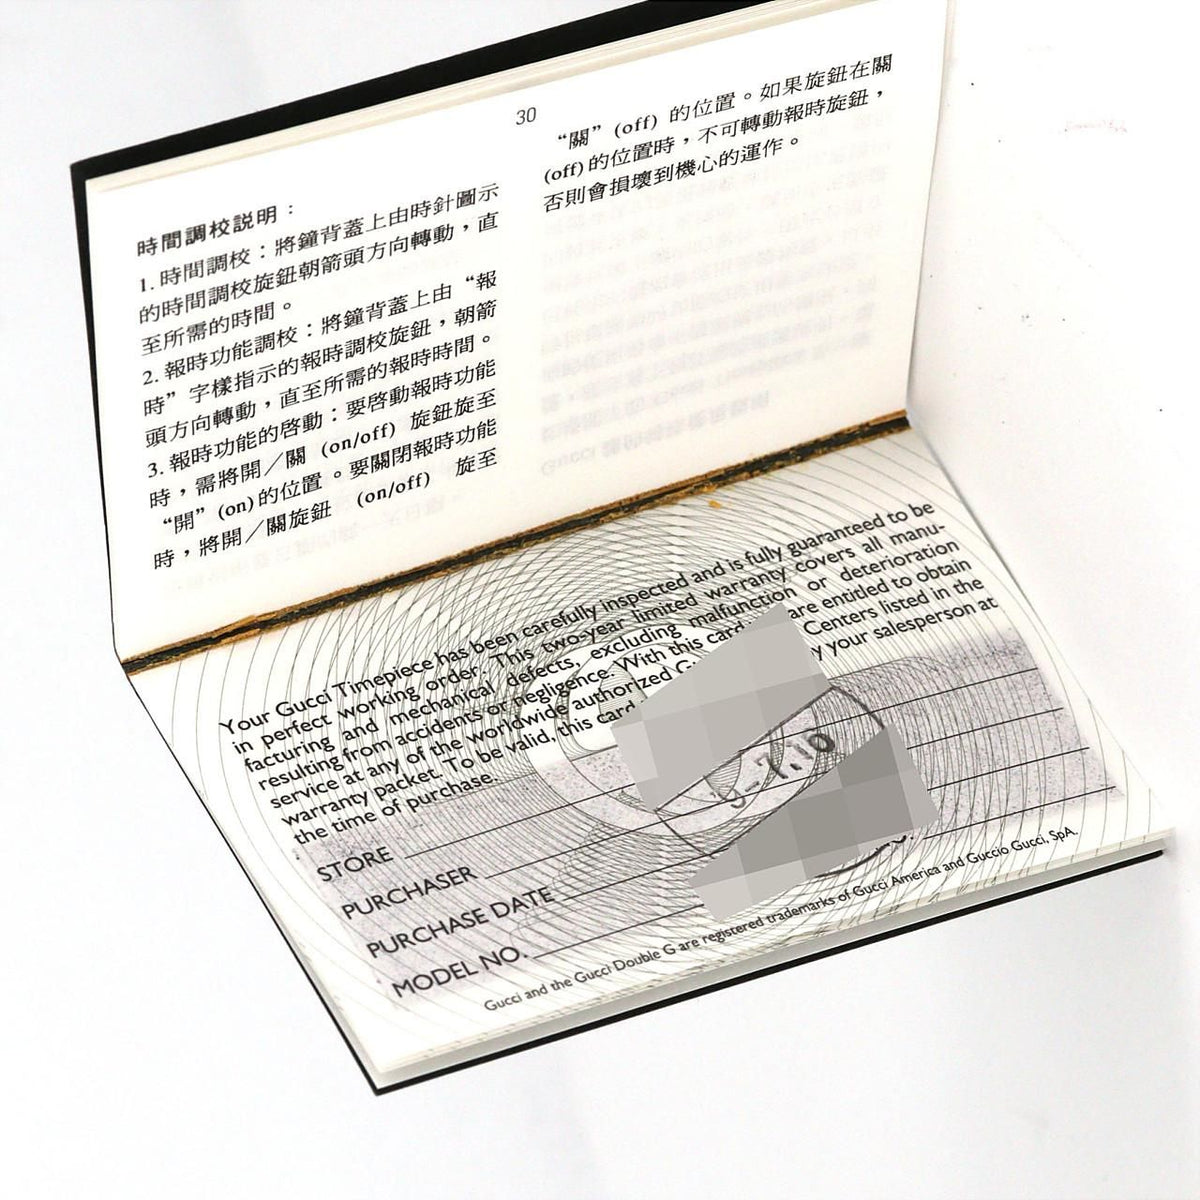 30
時間調校説明：
1. 時間調校：將鐘背蓋上由時針圖示
的時間調校旋鈕朝箭頭方向轉動，直
至所需的時間。
2. 報時功能調校：將鐘背蓋上由“報
時”字樣指示的報時調校旋鈕，朝箭
頭方向轉動，直至所需的報時時間。
3. 報時功能的啓動：要啓動報時功能
時，需將開／關 (on/off) 旋鈕旋至
“開” (on)的位置。要關閉報時功能
時，將開／關旋鈕 (on/off) 旋至
“關” (off) 的位置。如果旋鈕在關
(off)的位置時，不可轉動報時旋鈕，
否則會損壞到機心的運作。
Your Gucci Timepiece has been carefully inspected and is fully guaranteed to be
in perfect working order. This two-year limited warranty covers all manu-
facturing and mechanical defects, excluding malfunction or deterioration
resulting from accidents or negligence. With this card are entitled to obtain
service at any of the worldwide authorized Centers listed in the
warranty packet. To be valid, this card your salesperson at
the time of purchase.
STORE
PURCHASER
PURCHASE DATE
MODEL NO.
7.10
Gucci and the Gucci Double G are registered trademarks of Gucci America and Guccio Gucci, SpA.